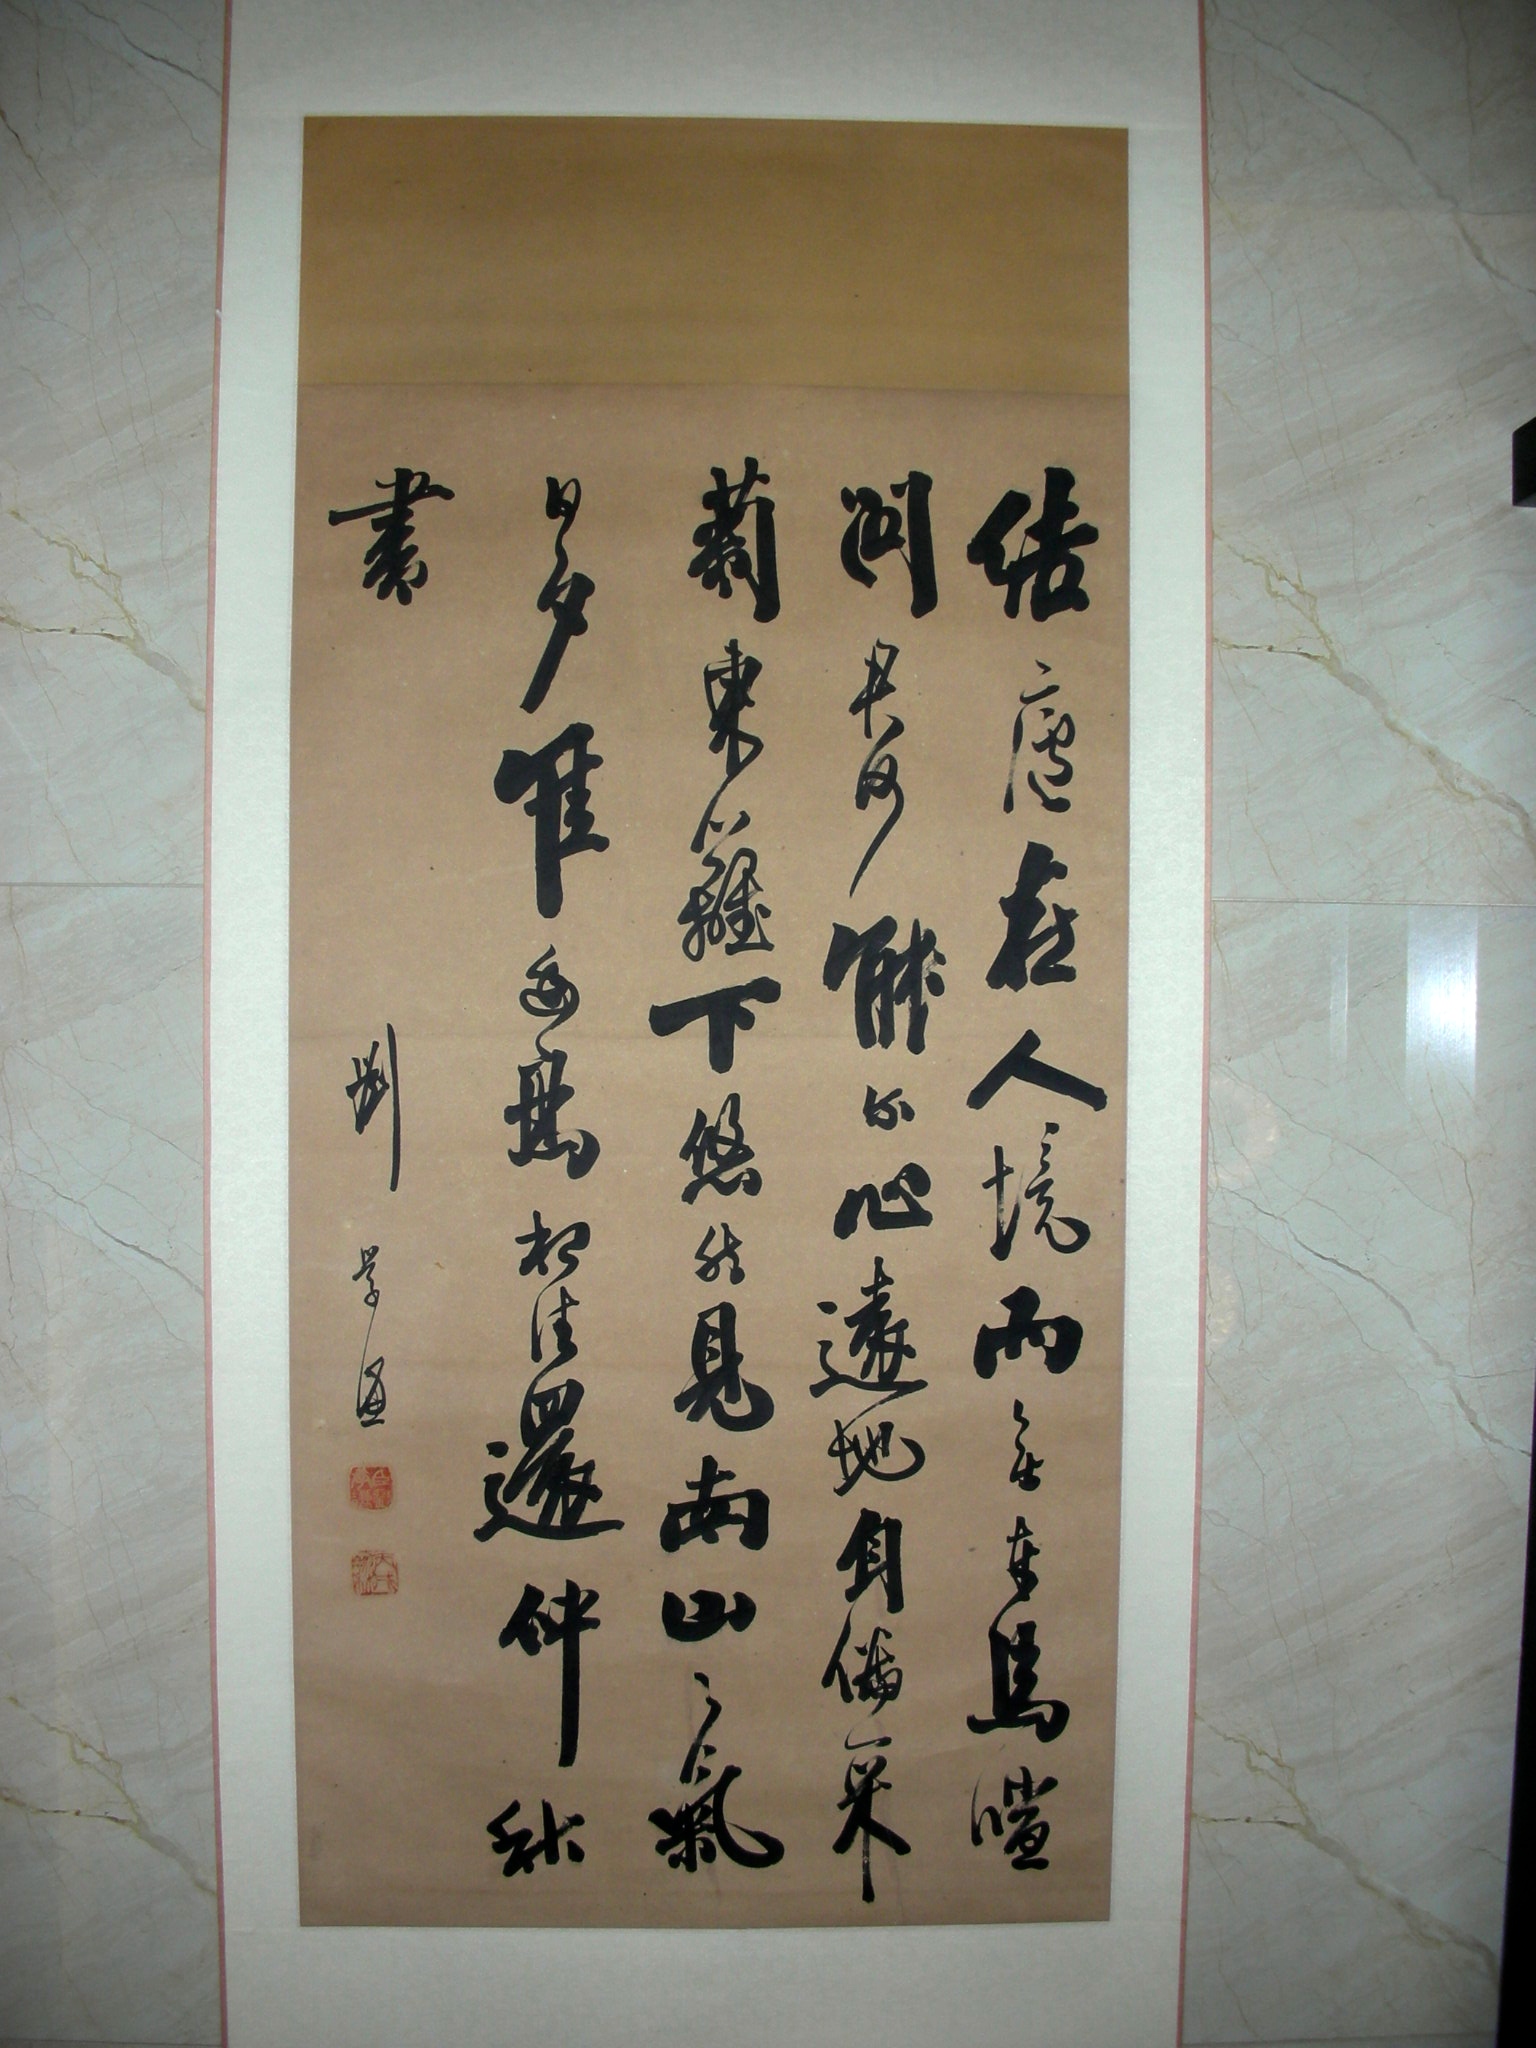 結廬在人境而無車馬喧
問君何能尔心遠地自偏采
菊東籬下悠然見南山〻氣
日夕佳飛鳥相往還仲秋
書
劉